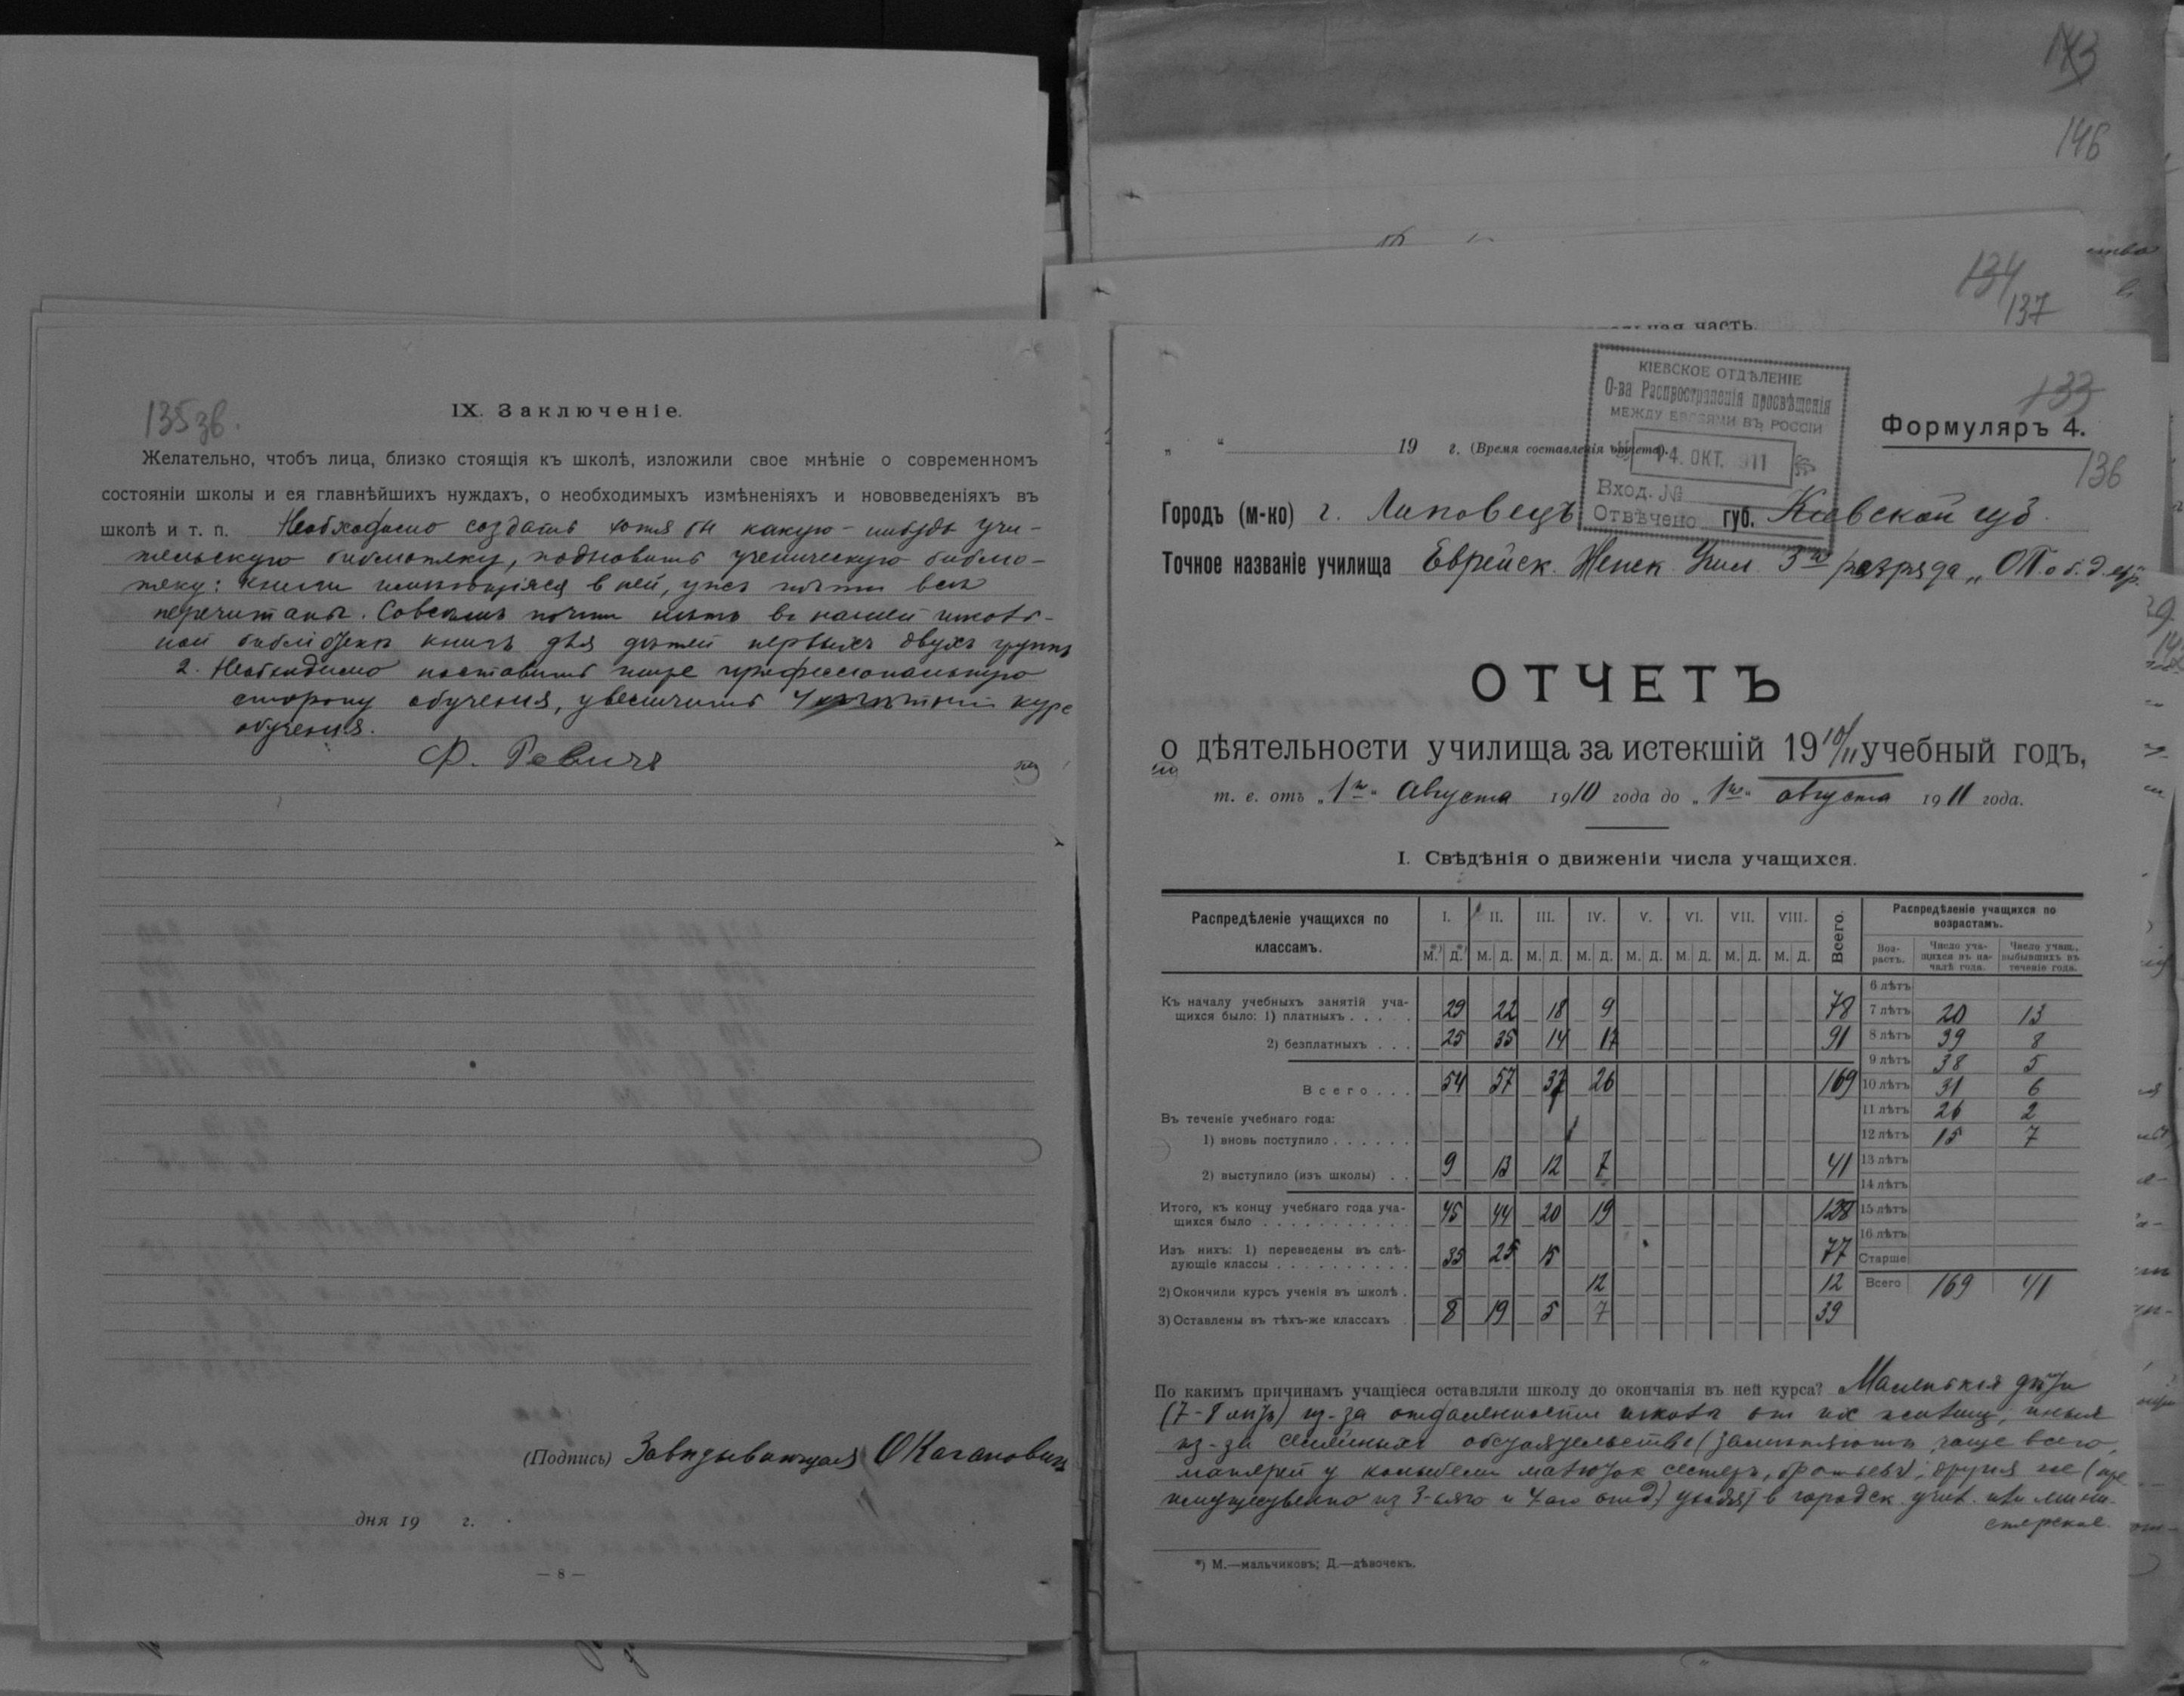 135 зв.
IX. Заключеніе.
Желательно, чтобъ лица, близко стоящія къ школѣ, изложили свое мнѣніе о современномъ
состояніи школы и ея главнѣйшихъ нуждахъ, о необходимыхъ измѣненіяхъ и нововведеніяхъ въ
школѣ и т. п. Необходимо создать хотя бы какую-нибудь учи-
тельскую библіотеку, подновить ученическую библіо-
теку: книги имѣющіяся в ней, уже почти всѣ
перечитаны. Совсѣмъ почти нѣтъ в нашей школь-
ной библіотекѣ книгъ для дѣтей первыхъ двухъ группъ
2. Необходимо поставить шире профессіональную
сторону обученія, увеличить курс
обученія.
Ф. Ревичъ
(Подпись) Завѣдывающая О Каганович
дня 19 г.
— 8 —
143
146
134
137
ьная часть.
133
Формуляръ 4.
136
КІЕВСКОЕ ОТДѢЛЕНІЕ
О-ва Распространенія просвѣщенія
МЕЖДУ ЕВРЕЯМИ ВЪ РОССІИ
14. ОКТ. 911
Вход. №
Отвѣчено
„ “ 19 г. (Время составленія отчета).
Городъ (м-ко) г. Липовецъ губ. Киевской губ.
Точное названіе училища Еврейск. Женск. Учил. 3го разряда „ОП.о б. д. евр.
ОТЧЕТЪ
о дѣятельности училища за истекшій 1910/11 учебный годъ,
т. е. отъ „1го“ Августа 1910 года до „1го“ августа 1911 года.
I. Свѣдѣнія о движеніи числа учащихся.
Распредѣленіе учащихся по классамъ. I. II. III. IV. V. VI. VII. VIII. Всего.
М.*) Д.*) М. Д. М. Д. М. Д. М. Д. М. Д. М. Д. М. Д.
Къ началу учебныхъ занятій уча-
щихся было: 1) платныхъ . . . . . 29 22 18 9 78
2) безплатныхъ . . . 25 35 14 17 91
Всего . . . 54 57 32 26 169
Въ теченіе учебнаго года:
1) вновь поступило . . . . . .
2) выступило (изъ школы) . . 9 13 12 7 41
Итого, къ концу учебнаго года уча-
щихся было . . . . . . . . . . . 45 44 20 19 128
Изъ нихъ: 1) переведены въ слѣ-
дующіе классы . . . . . . . . . . 35 25 15 77
2) Окончили курсъ ученія въ школѣ . 12 12
3) Оставлены въ тѣхъ-же классахъ . 8 19 5 7 39
Распредѣленіе учащихся по
возрастамъ.
Воз-
растъ. Число уча-
щихся въ на-
чалѣ года. Число учащ.,
выбывшихъ въ
теченіе года.
6 лѣтъ
7 лѣтъ 20 13
8 лѣтъ 39 8
9 лѣтъ 38 5
10 лѣтъ 31 6
11 лѣтъ 26 2
12 лѣтъ 15 7
13 лѣтъ
14 лѣтъ
15 лѣтъ
16 лѣтъ
Старше
Всего 169 41
По какимъ причинамъ учащіеся оставляли школу до окончанія въ ней курса? Маленькія дѣти
(7-8 лѣтъ) из-за отдаленности школы от их жилищ, иныя
из-за семейныхъ обстоятельствъ (замѣняютъ чаще всего
матерей у колыбели малютокъ сестеръ, братьевъ; другія же (пре
имущественно из 3-яго и 4-аго отд) уходят в городск. учил. или мини-
стерское.
*) М.—мальчиковъ; Д.—дѣвочекъ.